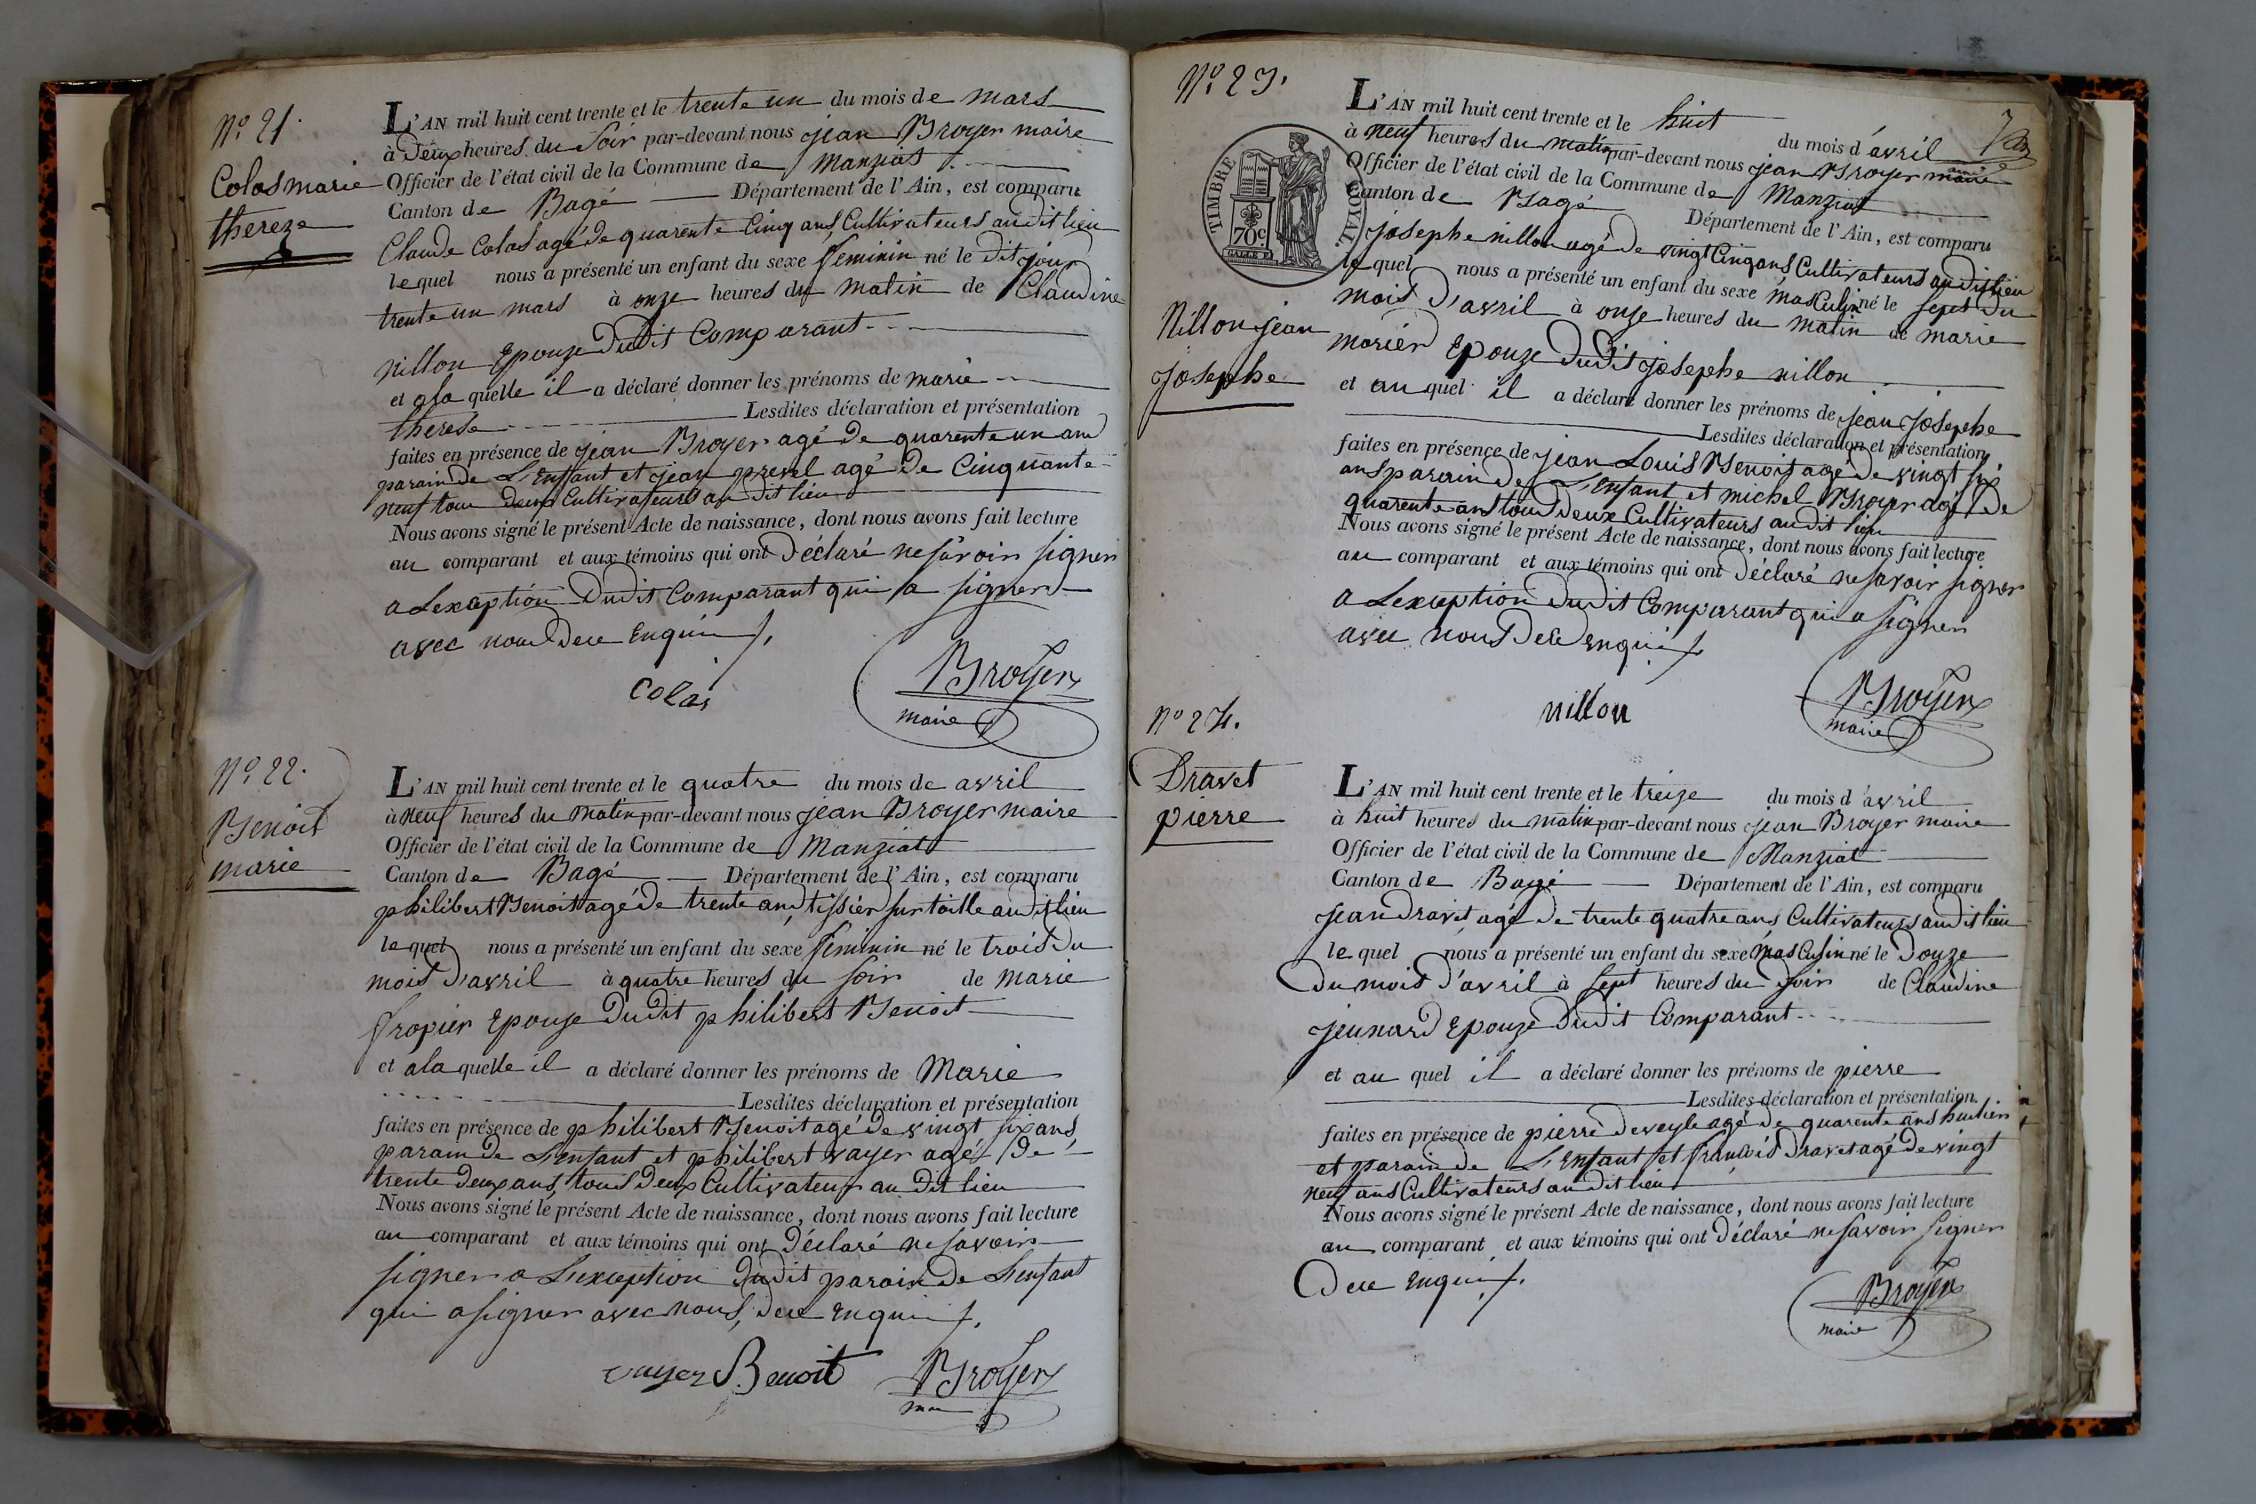 N.º 21.
Colas marie
thereze
L'AN mil huit cent trente et le trente un du mois de mars
à deux heures du soir par-devant nous jean Broyer maire
Officier de l'état civil de la Commune de Manziat
Canton de Bagé Département de l'Ain, est comparu
Claude Colas agé de quarente cinq ans Cultivateurs audit lieu
lequel nous a présenté un enfant du sexe feminin né le dit jour
trente un mars à onze heures du matin de Claudine
nillon Epouze dudit Comparant
et a la quelle il a déclaré donner les prénoms de marie
therese Lesdites déclaration et présentation
faites en présence de jean Broyer agé de quarente un ans
parain de L'enfant et jean prevel agé de Cinquante
neuf tous deux Cultivateurs au dit lieu
Nous avons signé le présent Acte de naissance, dont nous avons fait lecture
au comparant et aux témoins qui ont déclaré ne savoir signer
a Lexception dudit Comparant qui a signer
avec nous de ce Enquis
Colas
Broyer
maire
N.º 22.
Benoit
marie
L'AN mil huit cent trente et le quatre du mois de avril
à neuf heures du matin par-devant nous jean Broyer maire
Officier de l'état civil de la Commune de Manziat
Canton de Bagé Département de l'Ain, est comparu
philibert Benoit agé de trente ans tissier sur toille audit lieu
lequel nous a présenté un enfant du sexe feminin né le trois du
mois d'avril à quatre heures du soir de marie
fropier Epouze dudit philibert Benoit
et a la quelle il a déclaré donner les prénoms de Marie
Lesdites déclaration et présentation
faites en présence de philibert Benoit agé de vingt six ans
parain de L'enfant et philibert vayer agé de
trente deux ans, tous deux Cultivateur au dit lieu
Nous avons signé le présent Acte de naissance, dont nous avons fait lecture
au comparant et aux témoins qui ont déclaré ne savoir
signer a L'exception dudit parain de L'enfant
qui a signer avec nous, de ce enquis
Benoit
Broyer
N.º 23.
TIMBRE ROYAL.
70c
Nillon jean
josephe
L'AN mil huit cent trente et le huit du mois d'avril
à neuf heures du matin par-devant nous jean Broyer maire
Officier de l'état civil de la Commune de Manziat
Canton de Bagé Département de l'Ain, est comparu
josephe nillon agé de vingt Cinq ans Cultivateurs audit lieu
lequel nous a présenté un enfant du sexe masculin né le sept du
mois d'avril à onze heures du matin de marie
morier Epouze dudit josephe nillon
et au quel il a déclaré donner les prénoms de jean josephe
Lesdites déclaration et présentation
faites en présence de jean Louis Benoit agé de vingt six
ans parain de L'enfant et michel Broyer agé de
quarente ans tous deux Cultivateurs audit lieu
Nous avons signé le présent Acte de naissance, dont nous avons fait lecture
au comparant et aux témoins qui ont déclaré ne savoir signer
a Lexception dudit Comparant qui a signer
avec nous de ce enquis
nillon
Broyer
maire
Nº 24.
Dravet
pierre
L'AN mil huit cent trente et le treize du mois d'avril
à huit heures du matin par-devant nous jean Broyer maire
Officier de l'état civil de la Commune de Manziat
Canton de Bagé Département de l'Ain, est comparu
jean dravet agé de trente quatre ans Cultivateurs audit lieu
le quel nous a présenté un enfant du sexe masculin né le Douze
du mois d'avril à sept heures du soir de Claudine
jeunard Epouze dudit Comparant
et au quel il a déclaré donner les prénoms de pierre
Lesdites déclaration et présentation
faites en présence de pierre deveyle agé de quarente ans
et parain de L'enfant et françois dravet agé de vingt
neuf ans Cultivateurs audit lieu
Nous avons signé le présent Acte de naissance, dont nous avons fait lecture
au comparant et aux témoins qui ont déclaré ne savoir signer
De ce enquis
Broyer
maire